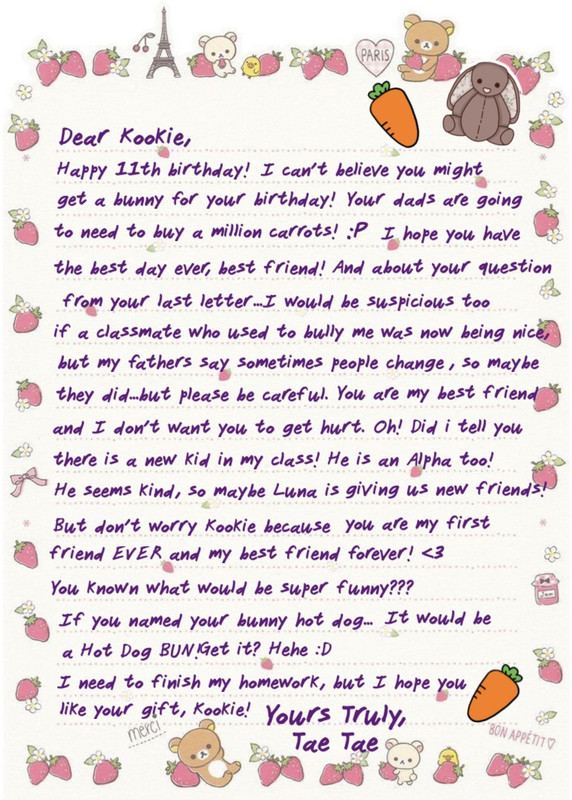 PARIS
Dear Kookie,
Happy 11th birthday! I can't believe you might
get a bunny for your birthday! Your dads are going
to need to buy a million carrots! :P I hope you have
the best day ever, best friend! And about your question
from your last letter...I would be suspicious too
if a classmate who used to bully me was now being nice,
but my fathers say sometimes people change, so maybe
they did...but please be careful. You are my best friend
and I don't want you to get hurt. Oh! Did i tell you
there is a new kid in my class! He is an Alpha too!
He seems kind, so maybe Luna is giving us new friends!
But don't worry Kookie because you are my first
friend EVER and my best friend forever! <3
You known what would be super funny???
If you named your bunny hot dog... It would be
a Hot Dog BUN!Get it? Hehe :D
I need to finish my homework, but I hope you
like your gift, Kookie!
Yours Truly,
Tae Tae
merci
BON APPÉTIT♡